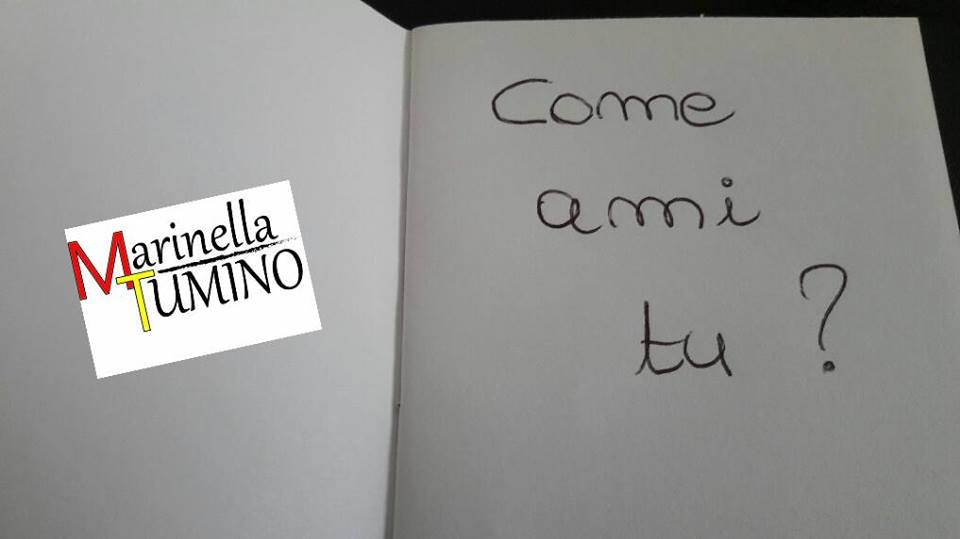 Marinella
TUMINO
Come
ami
tu ?